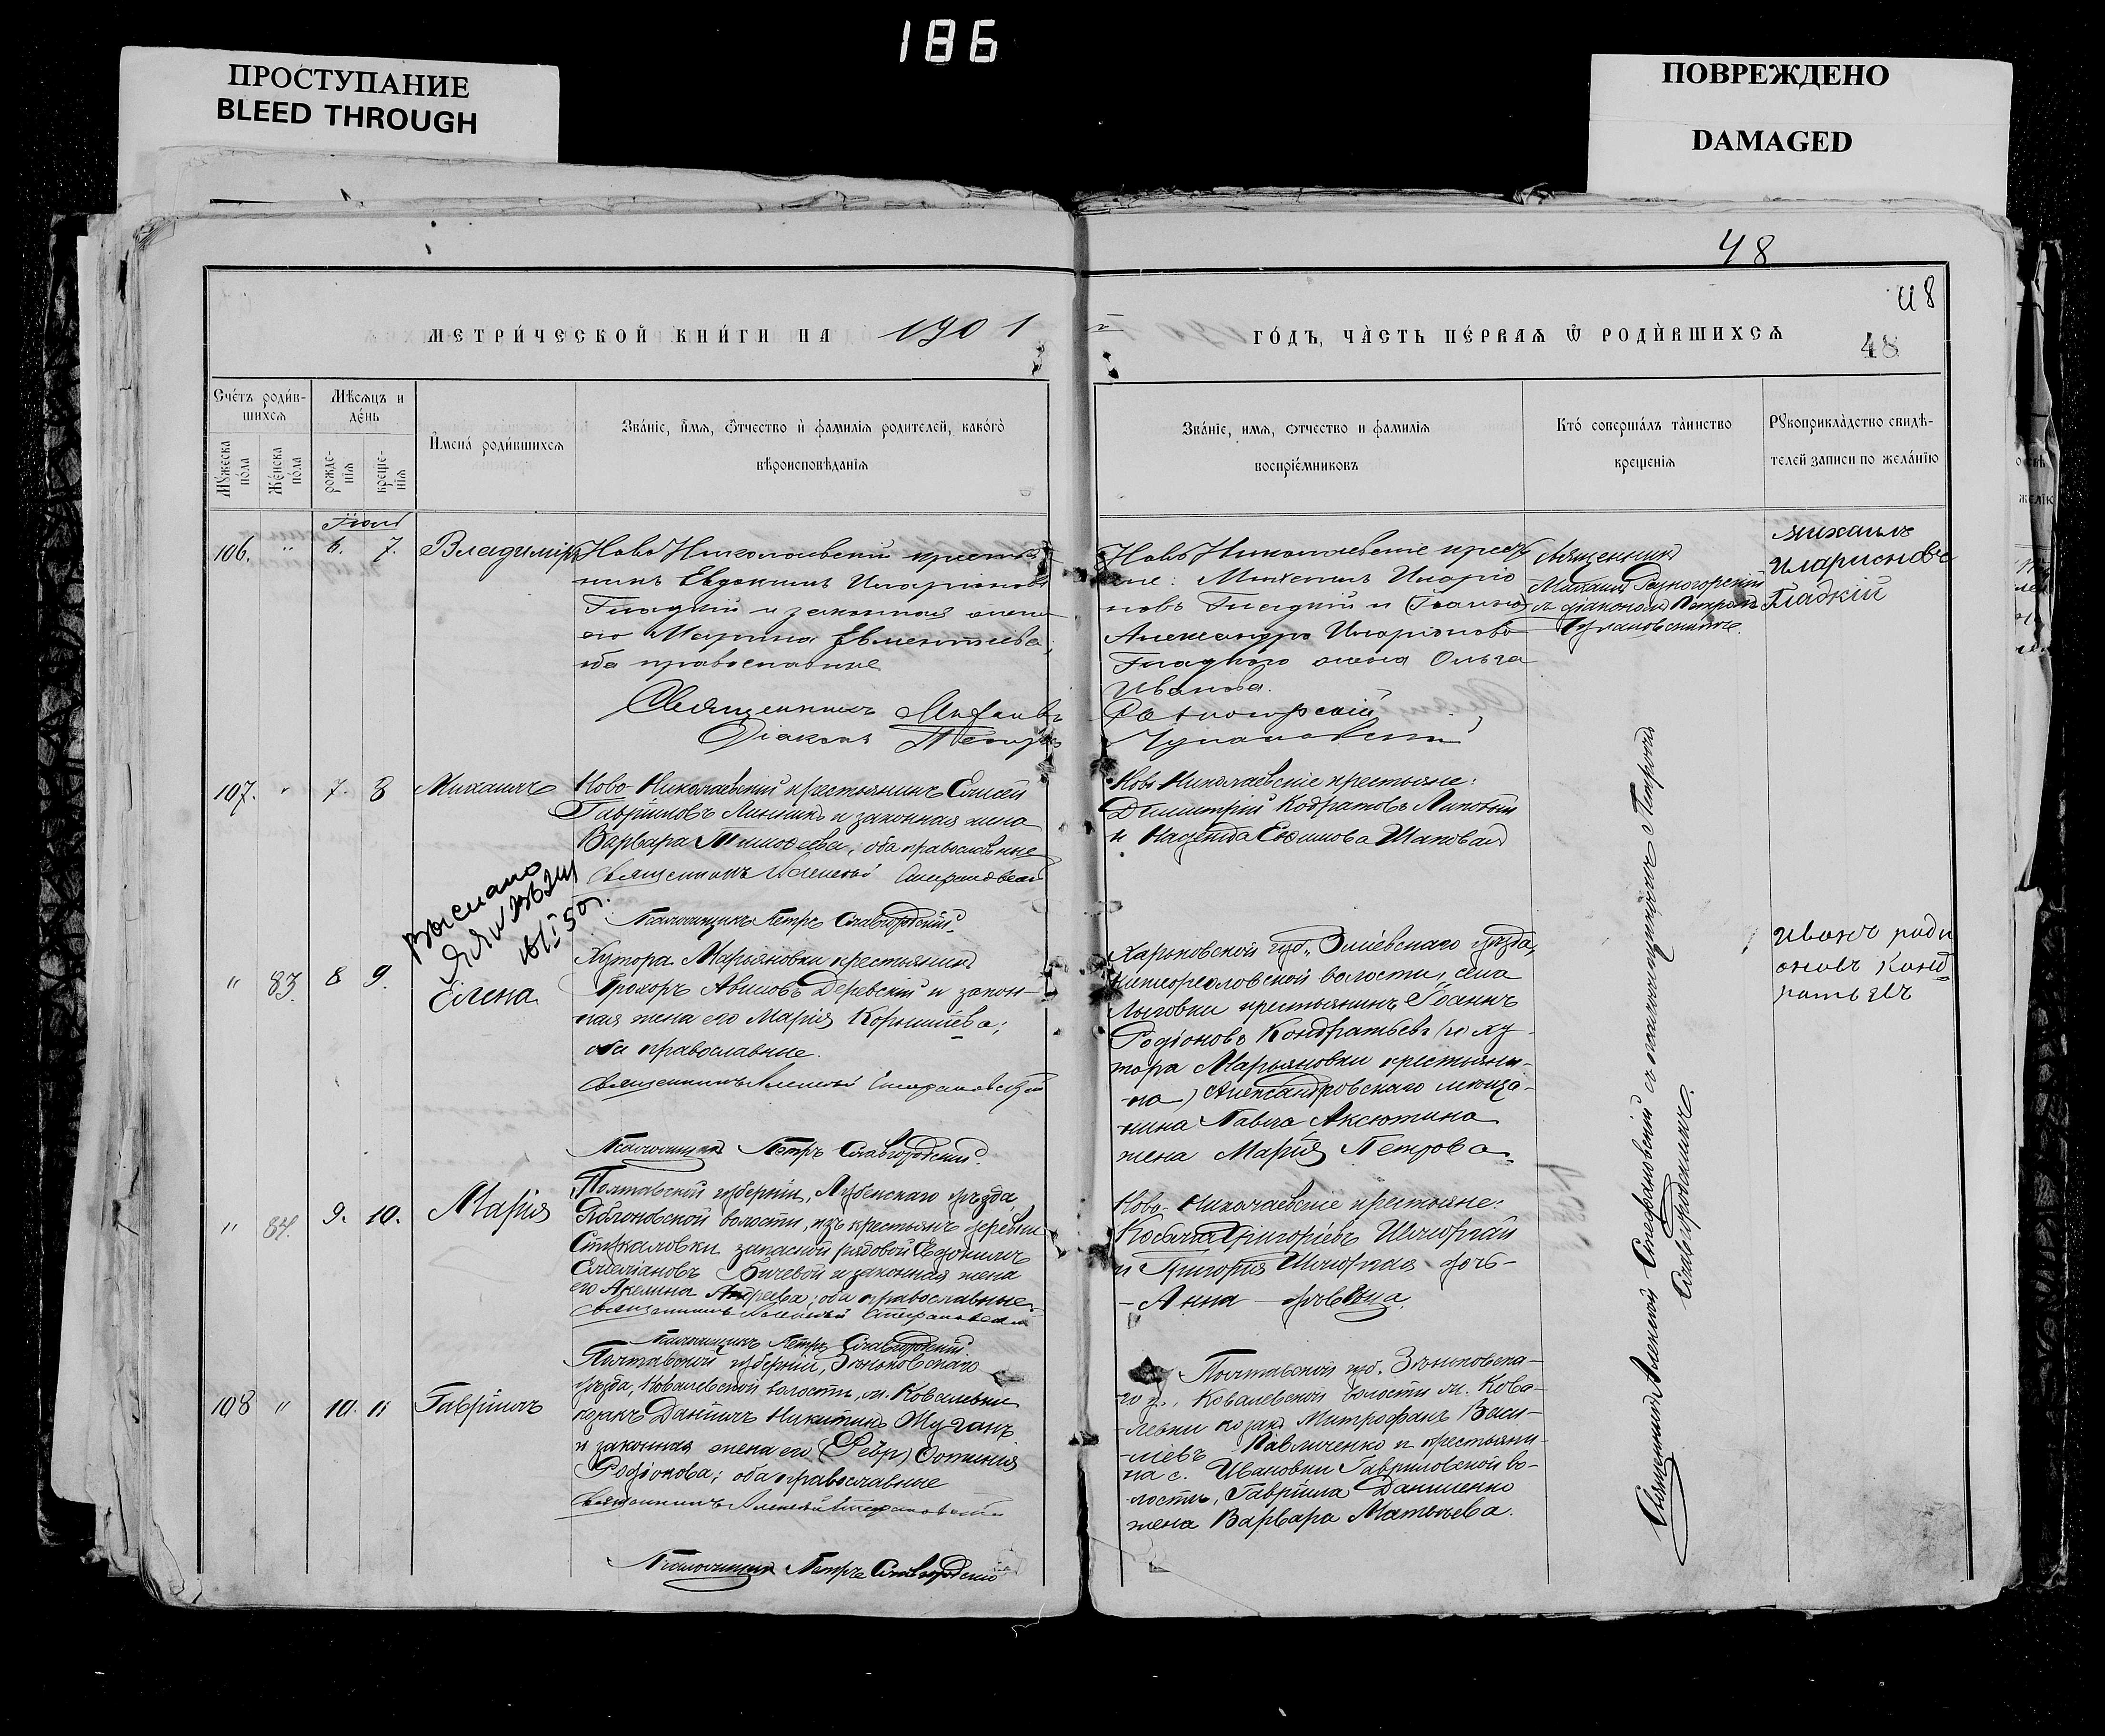 186
ПРОСТУПАНИЕ
BLEED THROUGH
ПОВРЕЖДЕНО
DAMAGED
48
48
МЕТРИ́ЧЕСКОЙ КНИ́ГИ НА 1901
ГО́ДЪ, ЧА́СТЬ ПЕ́РВАЯ Ѿ РОДИ́ВШИХСЯ
48
Сче́тъ роди́в-
шихся
Мѣ́сяцъ и
де́нь
Му́жеска
по́ла
Же́нска
по́ла
рожде-
нія
креще-
нія
Имена́ роди́вшихся
Зва́ніе, и́мя, о́тчество и фами́лія родителей, како́го
вѣроисповѣ́данія
Зва́ніе, имя, отчество и фами́лія
воспріе́мниковъ
Кто́ соверша́лъ та́инство
креще́нія
Рукоприкла́дство свидѣ́-
телей записи по жела́нію
Іюль
106. " 6. 7. Владиміръ
Ново Николаевскій крестья
нинъ Евдокимъ Иларіоновъ
Гладкій и законная жена
его Марина
оба православные
Священникъ Михаилъ
Діаконъ Петръ
Ново Николаевскіе крестья
не: Михаилъ Иларіо
новъ Гладкій и
Александра Иларіонова
Гладкаго жена Ольга
Иванова.
Священникъ
Михаилъ
съ діакономъ Петромъ
михаилъ
иларионовъ
Гладкій
107. " 7. 8 Михаилъ
Ново-Николаевскій крестьянинъ Елисей
Гавріиловъ Линникъ и законная жена
Варвара Тимоѳеева, оба православные
Священникъ Алексѣй Стефановскій
Псаломщикъ Петръ Славгородскій.
Ново Николаевскіе крестьяне:
Димитрій Кодратовъ Липовый
и Надежда Евѳимова Шаповалъ
выслано
" 83. 8 9. Елена
Хутора Марьяновки крестьянинъ
Прохоръ Деревскій и закон-
ная жена его Марія Корнилѣева;
оба православные.
Священникъ Алексѣй Стефановскій
Псаломщикъ Петръ Славгородскій.
Харьковской губ., Зміевскаго уѣзда,
волости, села
крестьянинъ Іоаннъ
Родіоновъ Кондратьевъ (и ху-
тора Марьяновки крестьяни-
на) Александровскаго мѣща-
нина Павла Аксютина
жена Марія Петрова.
Иванъ роди
оновъ Конд
ратьевъ
" 84. 9. 10. Марія
Полтавской губерніи, Лубенскаго уѣзда,
Яблоновской волости, изъ крестьянъ деревни
запасной рядовой Евдокимъ
Бичевой и законная жена
его Акелина Андреева; оба православные.
Священникъ Алексѣй Стефановскій
Псаломщикъ Петръ Славгородскій.
Ново-Николаевскіе крестьяне:
Косьма Григорьевъ
и Григорія дочь-
- Анна - дѣвица.
108 " 10. 11 Гавріилъ
Полтавской губерніи, Зѣньковскаго
уѣзда, Ковалевской волости, м. Ковалевки
козакъ Даніилъ Никитинъ
и законная жена его Ѳотинія
Родіонова; оба православные
Священникъ Алексѣй Стефановскій
Псаломщикъ Петръ Славгородскій
Полтавской губ. Зѣньковска-
го у., Ковалевской волости м. Кова-
левки козакъ Митрофанъ Васи-
ліевъ Павличенко и крестьяни-
на с. Ивановки Гавриловской во-
лости, Гавріила Даниленко
жена Варвара Матвѣева.
Священникъ Алексѣй Стефановскій съ псаломщикомъ Петромъ
Славгородскимъ.